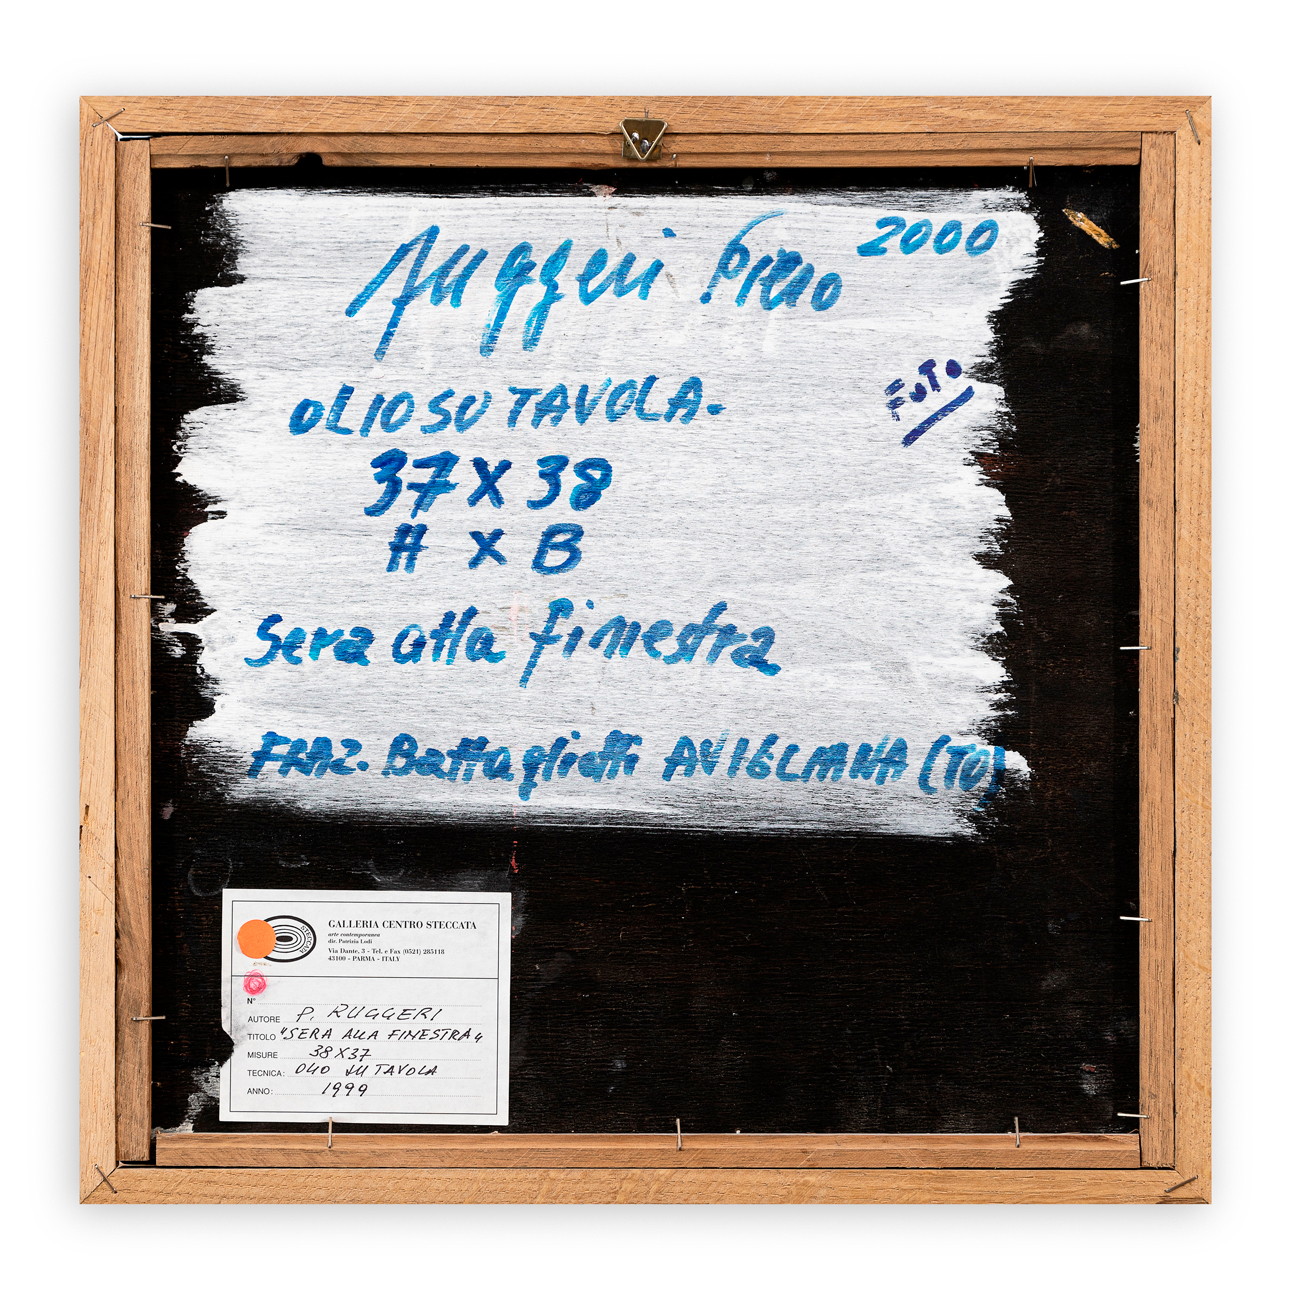 Ruggeri Piero 2000
OLIO SU TAVOLA-
FOTO
37 X 38
H X B
Sera alla finestra
FRAZ. Battagliotti AVIGLIANA (TO)
STECCATA
GALLERIA CENTRO STECCATA
arte contemporanea
dir. Patrizia Lodi
Via Dante, 3 - Tel. e Fax (0521) 285118
43100 - PARMA - ITALY
N°
AUTORE P. RUGGERI
TITOLO "SERA ALLA FINESTRA"
MISURE 38X37
TECNICA: OLIO SU TAVOLA
ANNO: 1999